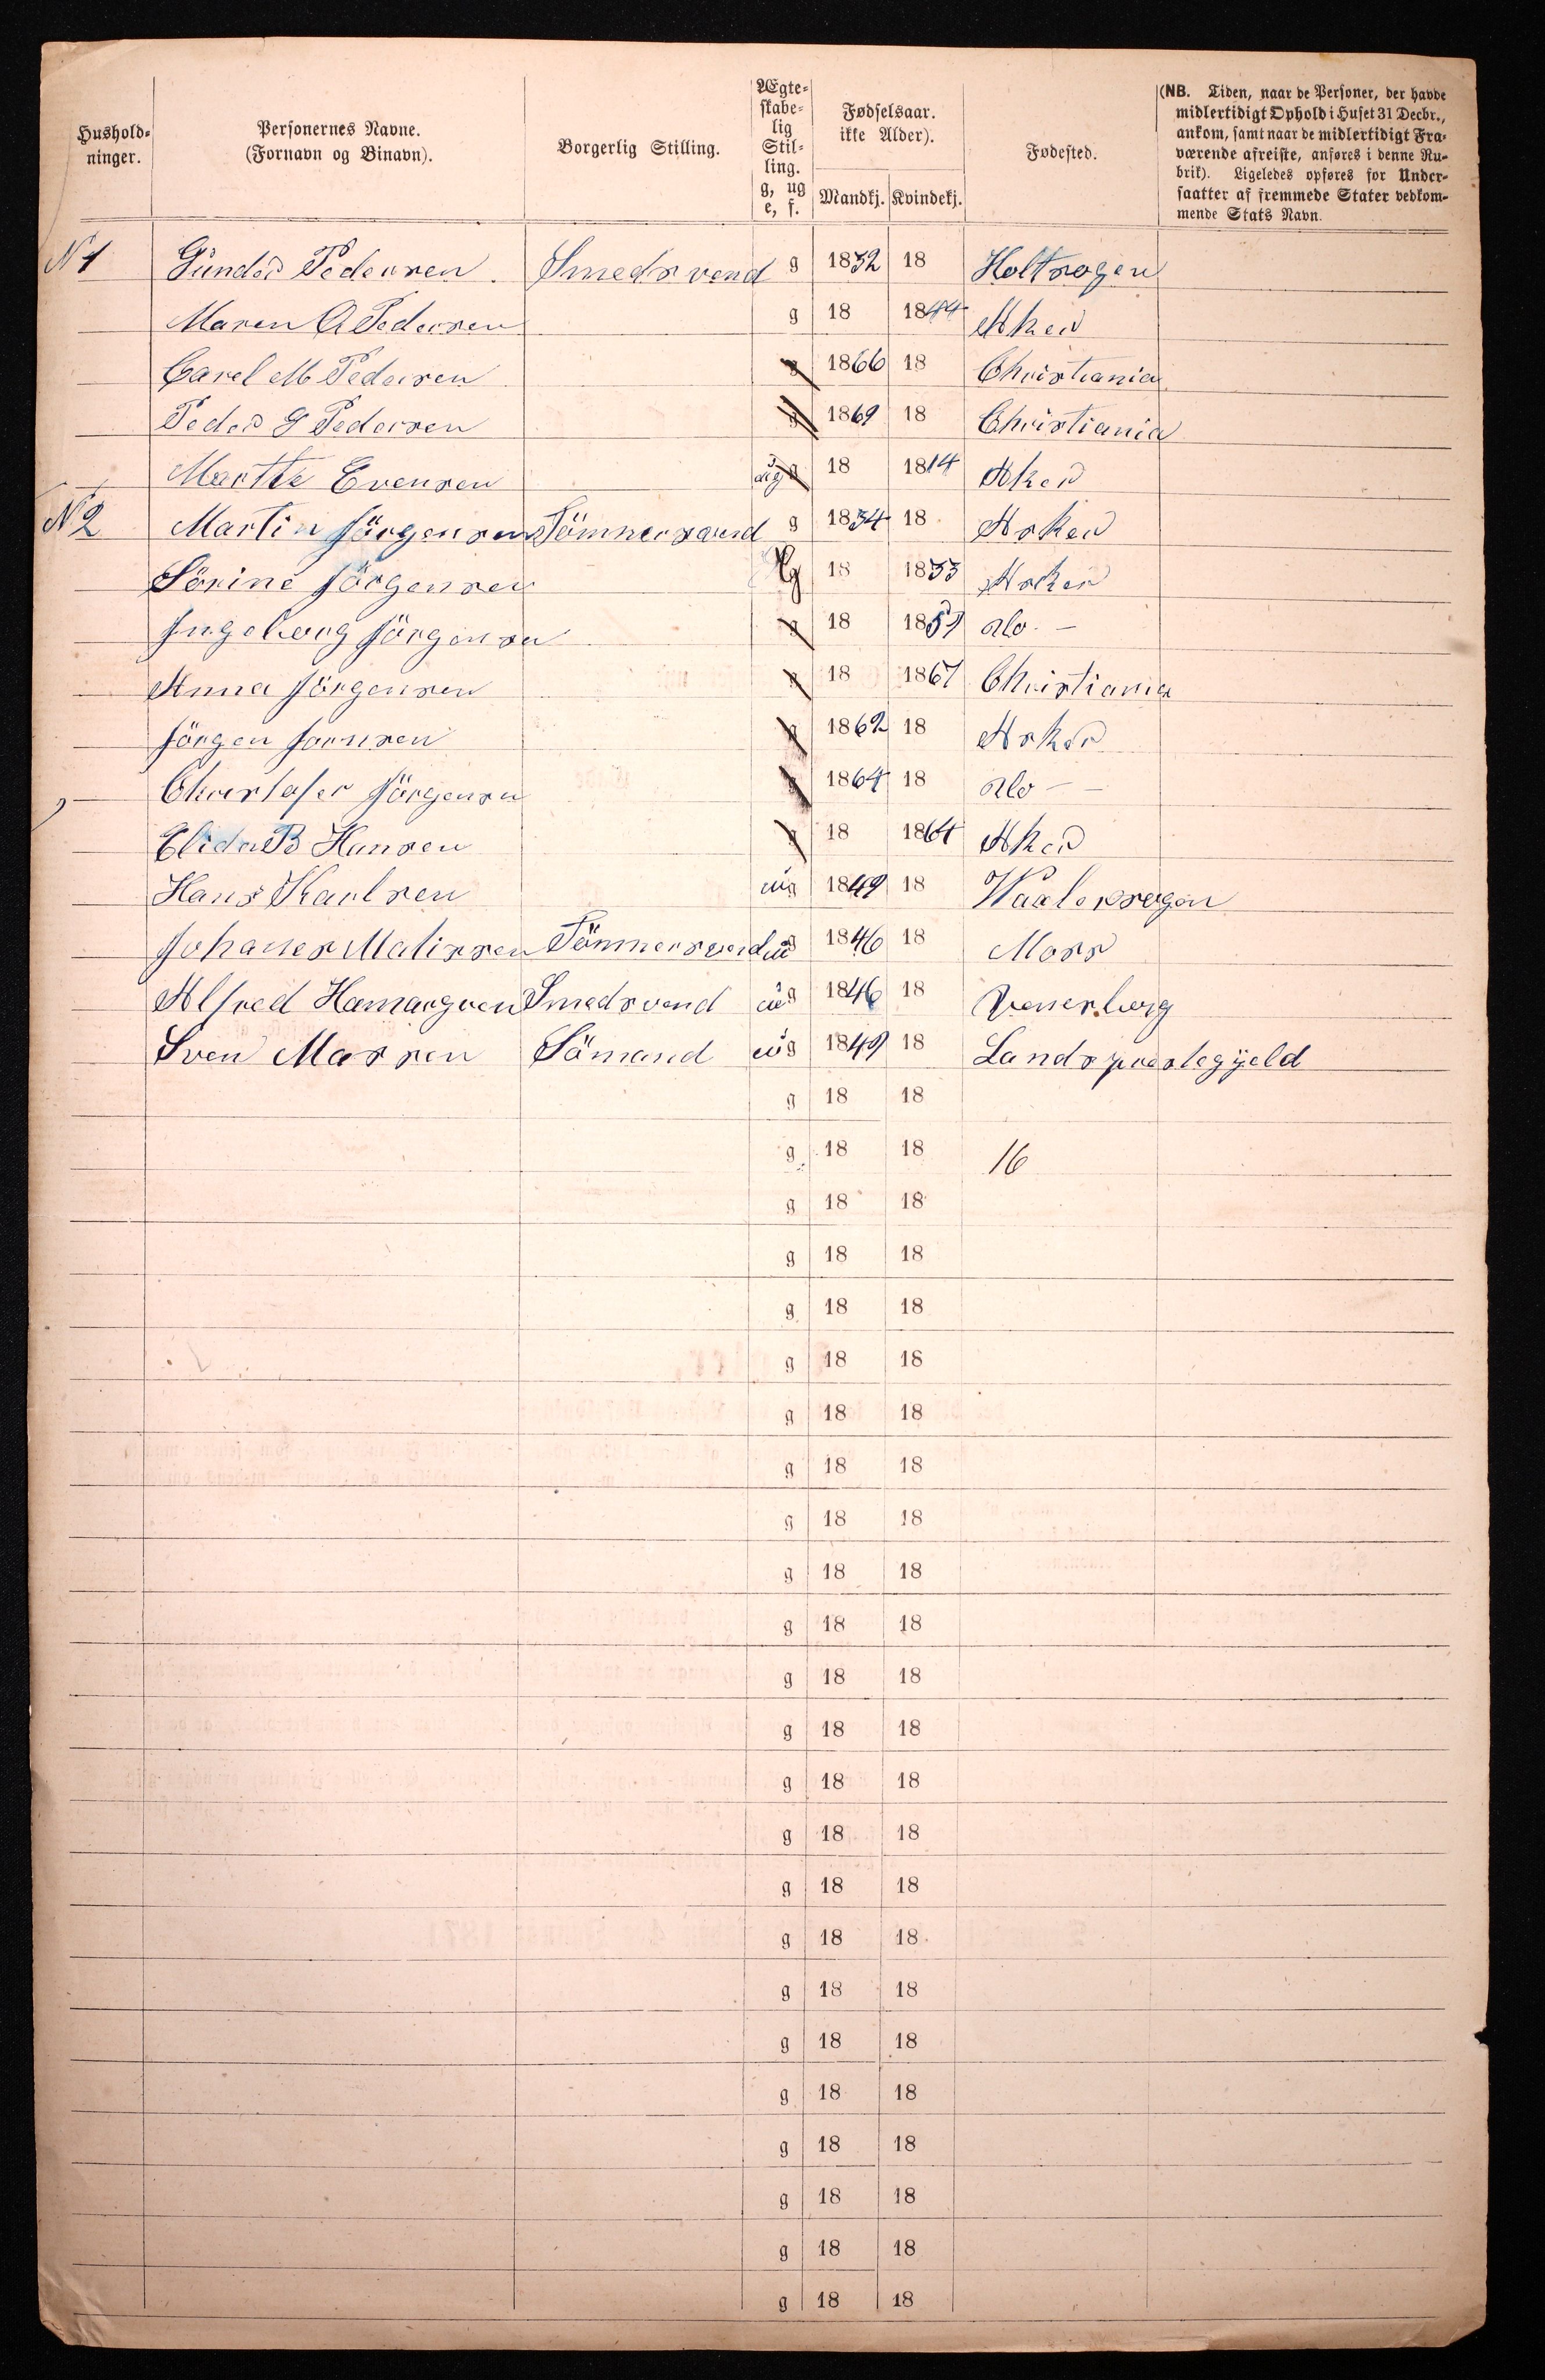 Hushold-
ninger.
Personernes Navne.
(Fornavn og Binavn).
Borgerlig Stilling.
Ægte-
skabe-
lig
Stil-
ling.
g, ug
e, f.
Fødselsaar.
ikke Alder).
Mandkj. Kvindekj.
Fødested.
(NB. Tiden, naar de Personer, der havde
midlertidigt Ophold i Huset 31 Decbr.,
ankom, samt naar de midlertidigt Fra-
værende afreiste, anføres i denne Ru-
brik). Ligeledes opføres for Under-
saatter af fremmede Stater vedkom-
mende Stats Navn.
N 1 Gunder Pedersen Smedsvend g 1832 18 Holtsogen
Maren A Pedersen g 18 1844 Aker
Carel M Pedersen g 1866 18 Christiania
Peder G Pedersen g 1869 18 Christiania
Marthe Evensen ug 18 1814 Aker
N 2 Martin Jörgensen Tömmersvend g 1834 18 Asker
Sörine Jörgensen g 18 1833 Asker
Ingeborg Jörgensen g 18 1859 do -
Anna Jörgensen g 18 1867 Christiania
Jörgen g 1862 18 Asker
Christofer Jörgensen g 1864 18 do - -
Elida B Hansen g 18 1864 Aker
Hans Karlsen ug 1849 18 Waalersogen
Johanes Matissen Tömmersvend ug 1846 18 Moss
Alfred Hamargren Smedsvend ug 1846 18 Venersborg
Sven Massen Sömand ug 1849 18 Landsprestegjeld
g 18 18
g 18 18 16
g 18 18
g 18 18
g 18 18
g 18 18
g 18 18
g 18 18
g 18 18
g 18 18
g 18 18
g 18 18
g 18 18
g 18 18
g 18 18
g 18 18
g 18 18
g 18 18
g 18 18
g 18 18
g 18 18
g 18 18
g 18 18
g 18 18